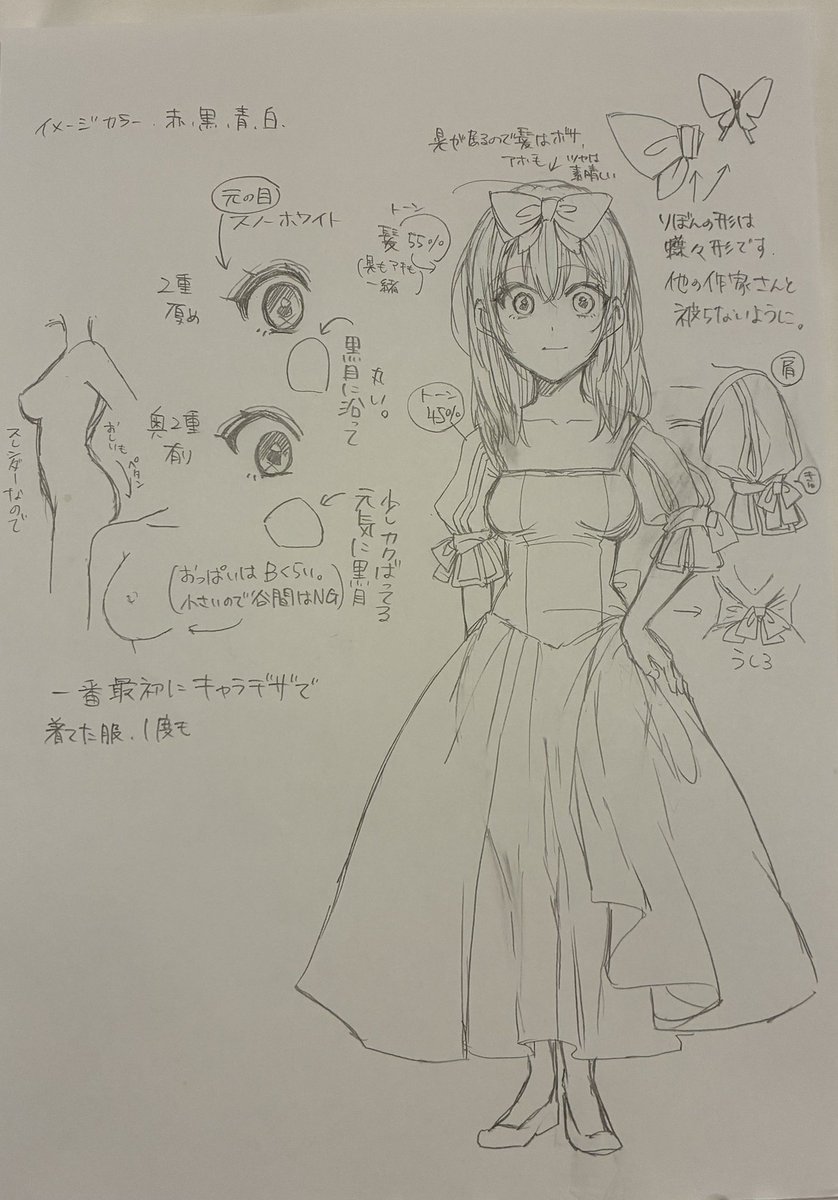 イメージカラー.赤、黒、青、白.
臭が出るので髪はボサ、
アホ毛 ツヤは
素晴しい
元の目
スノーホワイト
トーン
髪 55%
一緒
りぼんの形は
蝶々形です.
他の作家さんと
被らないように。
2重
厚め
丸い。
黒目に沿って
トーン
45%
肩
奥2重
有り
おしりも
ペタン
スレンダーなので
少しカクばってる
元気に黒目
(おっぱいはBくらい。
小さいので谷間はNG)
うしろ
一番最初にキャラデザで
着てた服.1度も